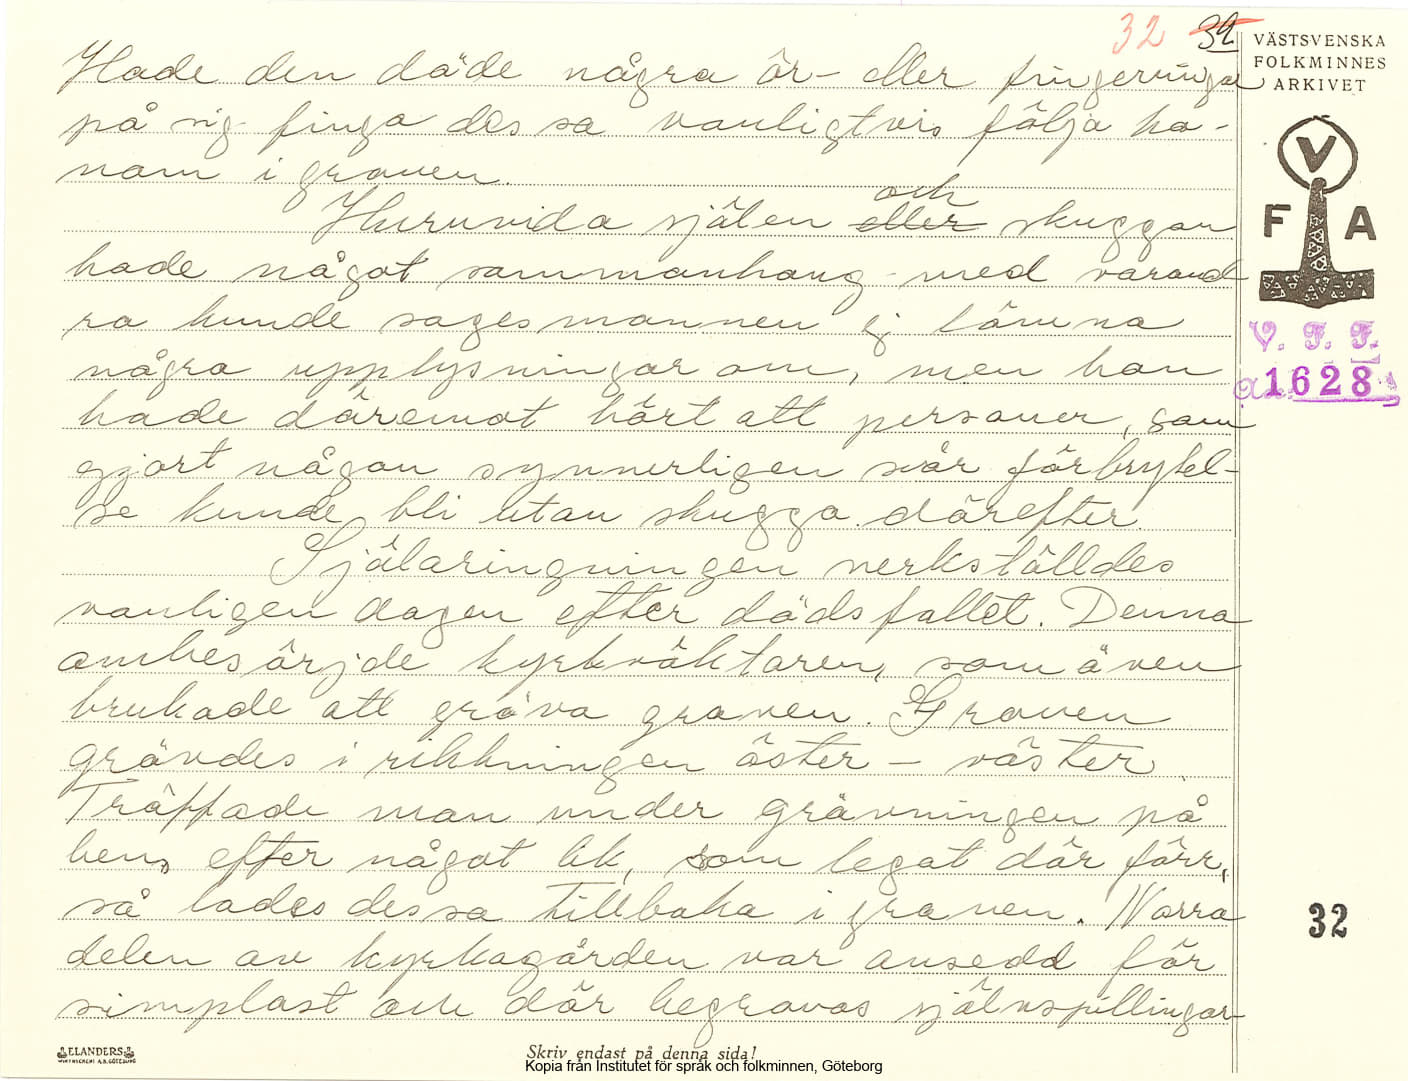 32 32
VÄSTSVENSKA
FOLKMINNES
ARKIVET
V
F A
V. F. F.
1628
Hade den döde några ör- eller fingerringar
på sig finga dessa vanligtvis följa ho-
nom i graven.
Huruvida själen eller och skuggan
hade något sammanhang med varand
ra kunde sagesmannen ej lämna
några upplysningar om, men han
hade däremot hört att personer, som
gjort någon synnerligen svår förbrytel-
se kunde bli utan skugga därefter.
Själaringningen verkställdes
vanligen dagen efter dödsfallet. Denna
ombesörjde kyrkväktaren, som även
brukade att gräva graven. Graven
grävdes i rikkningen öster – väster.
Träffade man under grävningen på
ben, efter något lik, som legat där förr,
så lades dessa tillbaka i graven. Norra
delen av kyrkogården var ansedd för
simplast och där begravas självspillingar
32
ELANDERS
Skriv endast på denna sida!
Kopia från Institutet för språk och folkminnen, Göteborg